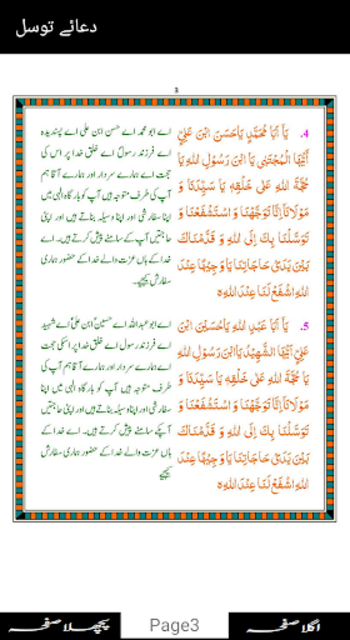 دعائے توسل
3
4. يَآ اَبَا مُحَمَّدٍ يَاحَسَنَ ابْنَ عَلِيٍّ
اَيُّهَا الْمُجْتَبٰى يَا ابْنَ رَسُوْلِ اللهِ يَا
حُجَّةَ اللهِ عَلٰى خَلْقِهٖ يَا سَيِّدَنَا وَ
مَوْلَانَا اِنَّا تَوَجَّهْنَا وَ اسْتَشْفَعْنَا وَ
تَوَسَّلْنَا بِكَ اِلَى اللهِ وَ قَدَّمْنَاكَ
بَيْنَ يَدَىْ حَاجَاتِنَا يَا وَجِيْهًا عِنْدَ
اللهِ اشْفَعْ لَنَا عِنْدَ اللهِ ہ
اے ابو محمد اے حسن ابن علی اے پسندیدہ
اے فرزند رسول اے خلق خدا پر اس کی
حجت اے ہمارے سردار اور ہمارے آقا ہم
آپ کی طرف متوجہ ہیں آپ کو بارگاہ الٰہی میں
اپنا سفارشی اور اپنا وسیلہ بناتے ہیں اور اپنی
حاجتیں آپ کے سامنے پیش کرتے ہیں۔ اے
خدا کے ہاں عزت والے خدا کے حضور ہماری
سفارش کیجیے۔
5. يَآ اَبَا عَبْدِ اللهِ يَاحُسَيْنَ ابْنَ
عَلِيٍّ اَيُّهَا الشَّهِيْدُ يَاابْنَ رَسُوْلِ اللهِ
يَا حُجَّةَ اللهِ عَلٰى خَلْقِهٖ يَا سَيِّدَنَا وَ
مَوْلَانَا اِنَّا تَوَجَّهْنَا وَ اسْتَشْفَعْنَا وَ
تَوَسَّلْنَا بِكَ اِلَى اللهِ وَ قَدَّمْنَاكَ
بَيْنَ يَدَىْ حَاجَاتِنَا يَا وَجِيْهًا عِنْدَ
اللهِ اشْفَعْ لَنَا عِنْدَ اللهِ ہ
اے ابو عبداللہ اے حسین ابن علی اے شہید
اے فرزند رسول اے خلق خدا پر اسکی حجت
اے ہمارے سردار اور ہمارے آقا ہم آپ کی
طرف متوجہ ہیں آپ کو بارگاہ الٰہی میں اپنا
سفارشی اور اپنا وسیلہ بناتے ہیں اور اپنی حاجتیں
آپکے سامنے پیش کرتے ہیں۔ اے خدا کے
ہاں عزت والے خدا کے حضور ہماری سفارش
کیجیے
اگلا صفحہ
Page3
پچھلا صفحہ